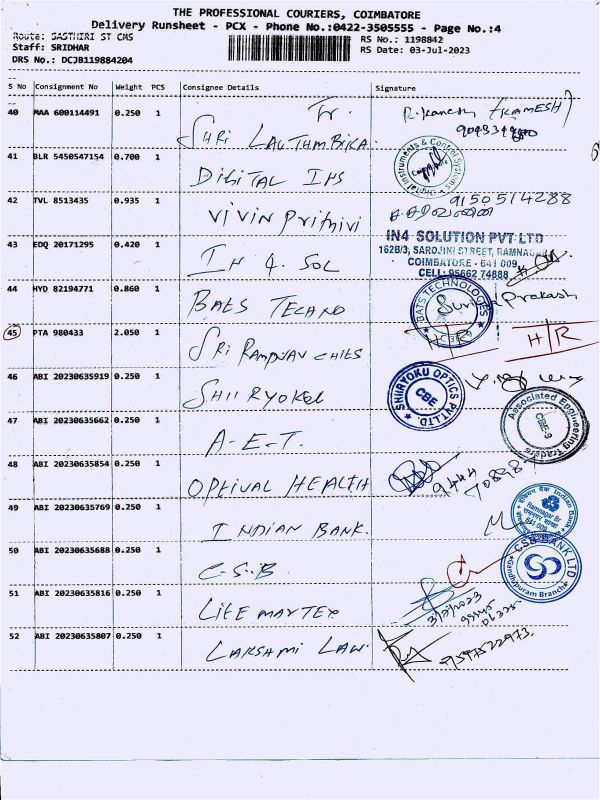 THE PROFESSIONAL COURIERS, COIMBATORE
Delivery Runsheet - PCX - Phone No.:0422-3505555 - Page No.:4
Route: SASTHIRI ST CMS
RS No.: 1198842
Staff: SRIDHAR
RS Date: 03-Jul-2023
DRS No.: DCJB119884204
S No Consignment No Weight PCS Consignee Details Signature
40 MAA 600114491 0.250 1
SHRI LALITHAMBIKA
(RAMESH)
41 BLR 5450547154 0.700 1
DIGITAL INS
Digital Instruments & Control Systems
42 TVL 8513435 0.935 1
VIVIN Prithivi
9150514288
43 EDQ 20171295 0.420 1
IN 4 SOL
IN4 SOLUTION PVT LTD
162B/3, SAROJINI STREET, RAMNAGAR
COIMBATORE - 641 009,
CELL: 95662 74888
44 HYD 82194771 0.860 1
BATS TECHNO
BATS TECHNOLOGIES
CBE-9
Prakash
45 PTA 980433 2.050 1
SRI RAMNAV CHITS
H/R H/R
46 ABI 20230635919 0.250 1
SHIIRYOKU
SHIIRYOKU OPTICS PVT.LTD.
CBE
47 ABI 20230635662 0.250 1
A-E-T.
Associated Engineering Traders
CBE-9
48 ABI 20230635854 0.250 1
OPTIVAL HEALTH
49 ABI 20230635769 0.250 1
INDIAN BANK.
Indian Bank
Ramnagar Br
641 009
50 ABI 20230635688 0.250 1
C-S-B
CSB BANK LTD
Gandhipuram Branch
51 ABI 20230635816 0.250 1
LIFE MARTEX
3/7/2023
52 ABI 20230635807 0.250 1
LAKSHMI LAW.
9597522973.